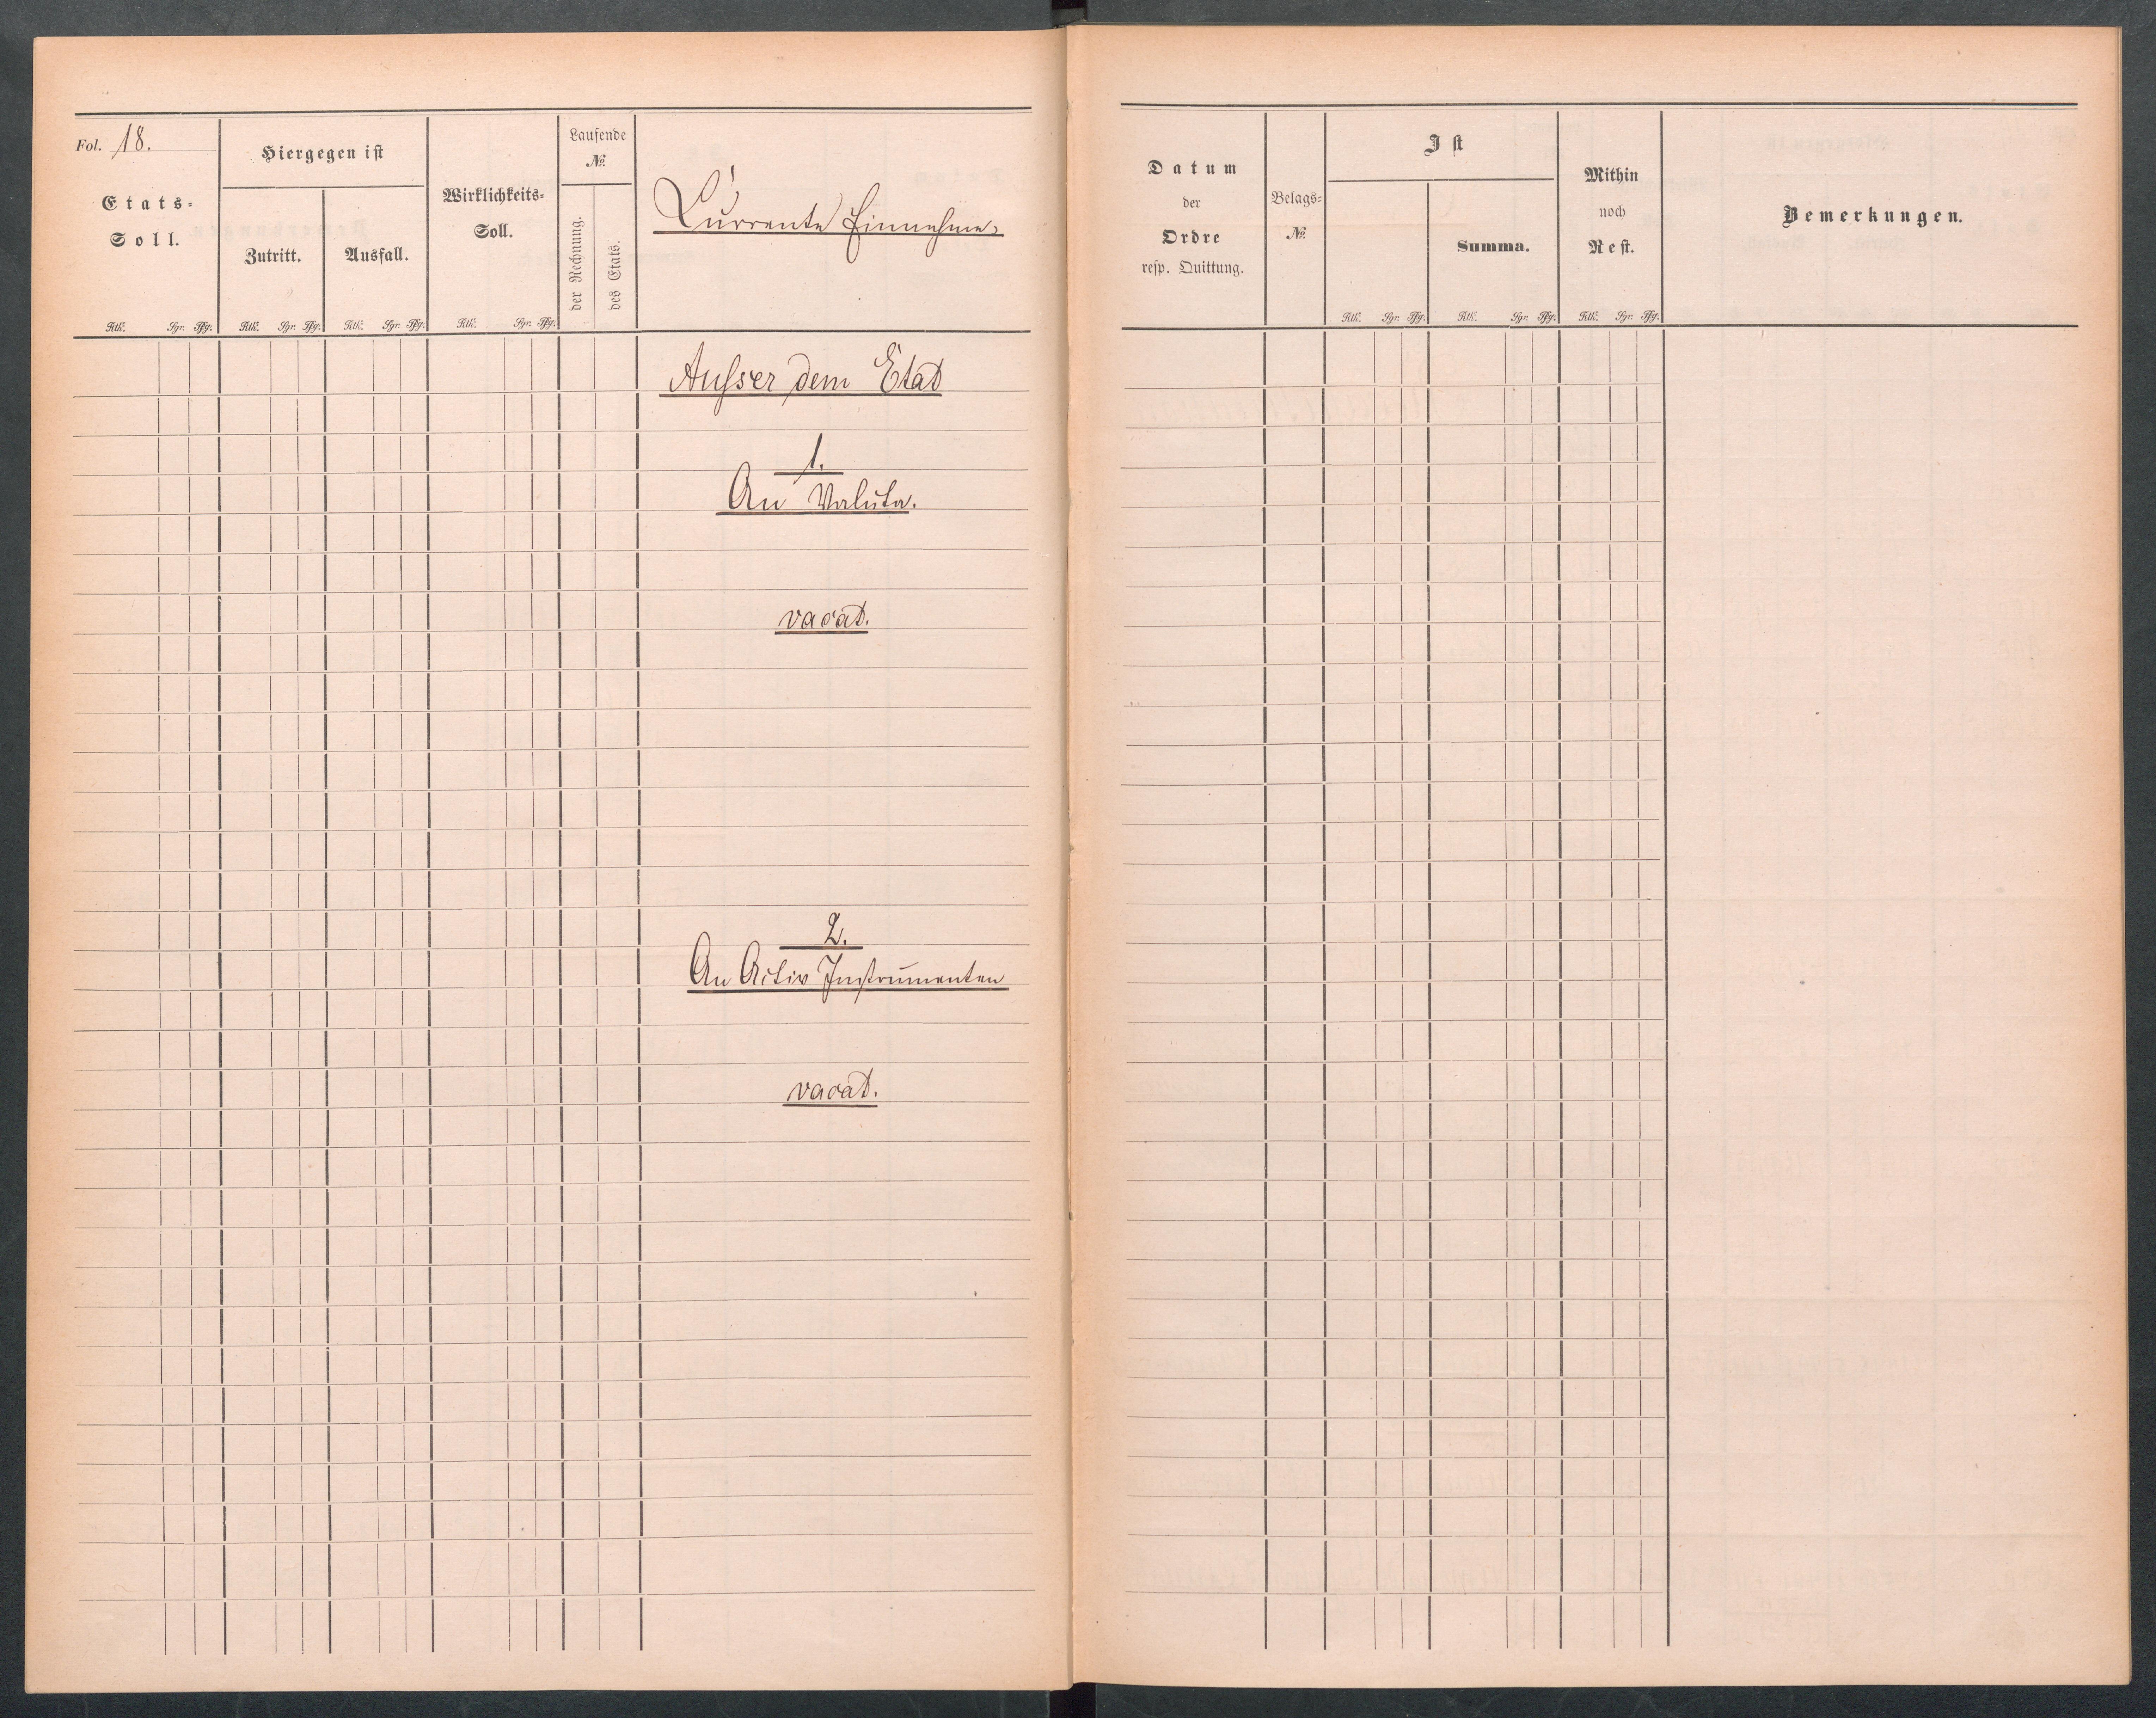 Fol. 18.
Etats-
Soll.
Hiergegen ist
Zutritt.
Ausfall.
Wirklichkeits-
Soll.
Laufende
No.
der Rechnung.
des Etats.
Currente Einnahme.
Rth. Sgr. Pfg. Rth. Sgr. Pfg. Rth. Sgr. Pfg. Rth. Sgr. Pfg.
Ausser dem Etat
1.
An Valuta.
vacat.
2.
An Activ Instrumenten
vacat.
Datum
der
Ordre
resp. Quittung.
Belags-
No.
Ist
Summa.
Mithin
noch
Rest.
Bemerkungen.
Rth. Sgr. Pfg. Rth. Sgr. Pfg. Rth. Sgr. Pfg.